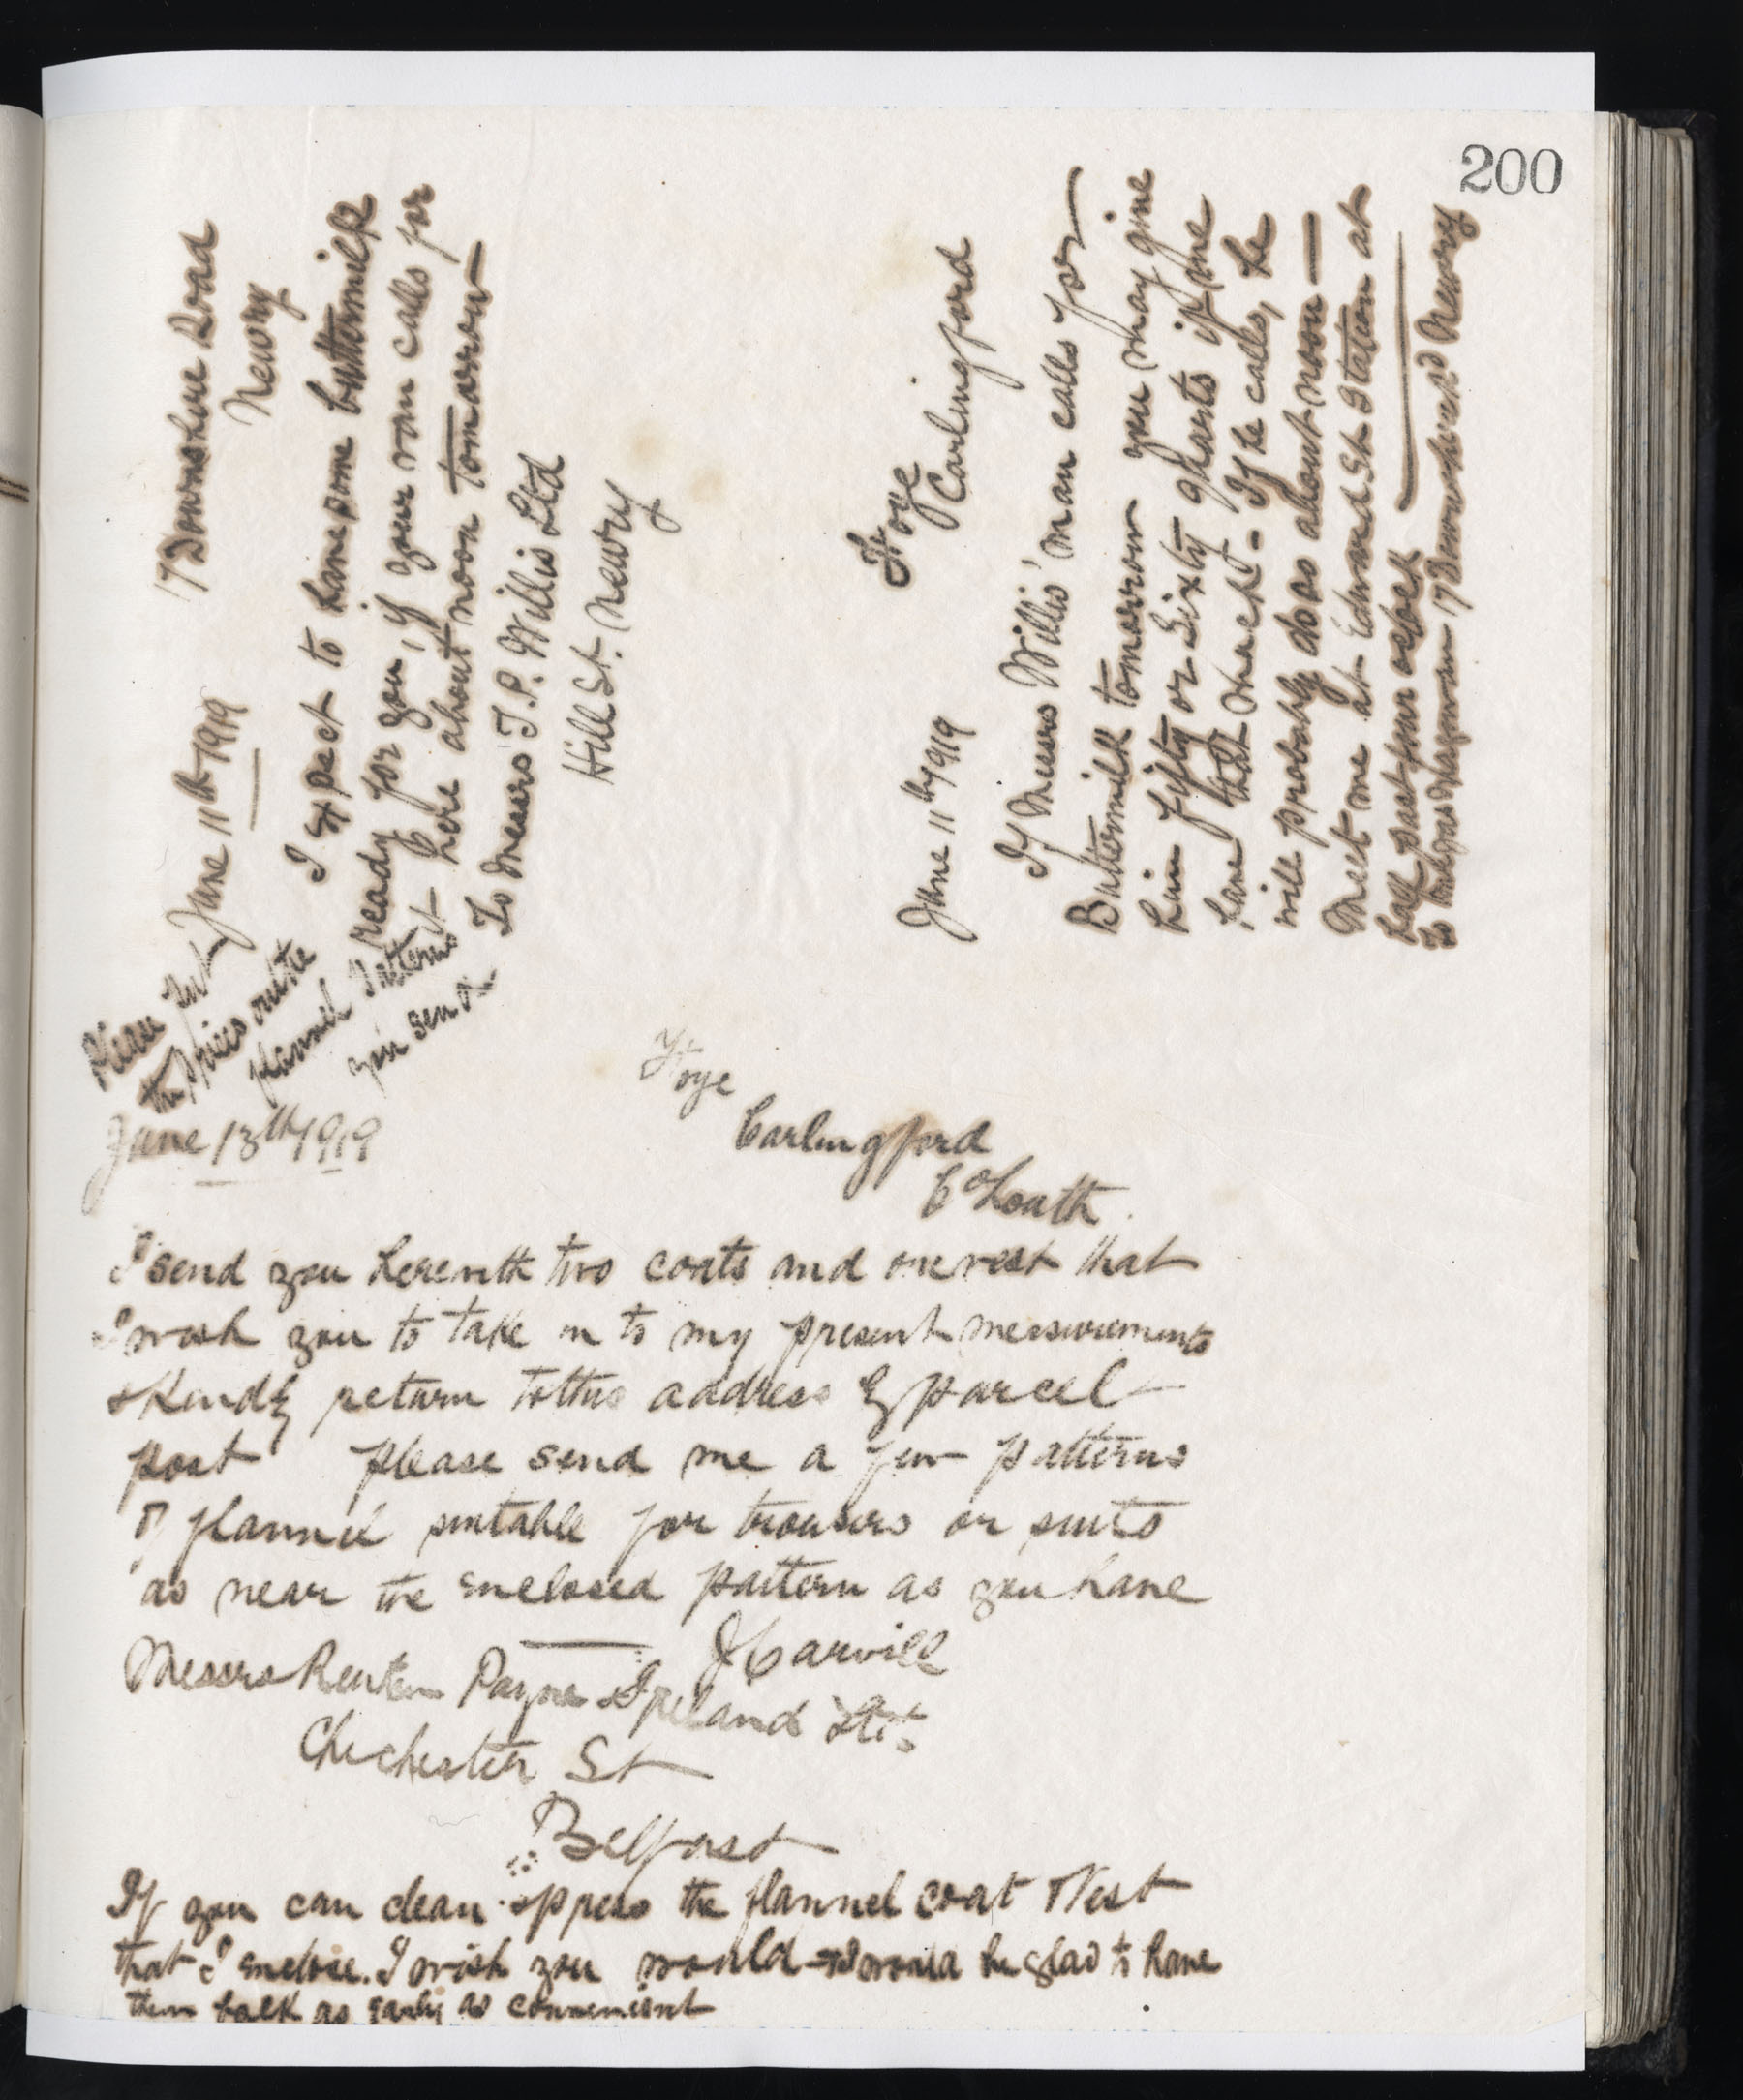 200
17 Downshire Road
Newry
June 11th 1919
I expect to have some buttermilk
ready for you, if your van calls for
it here about noon tomorrow—
To Messrs T.P. Willis Ltd
Hill St. Newry
Ffoye
Carlingford
June 11th 1919
If Messrs Willis' man calls for
Buttermilk tomorrow you may give
him fifty or Sixty quarts if we
have that much - If he calls, he
will probably do so about noon—
Meet me at Edward St Station at
half past four oclock
To 17 Downshire Rd Newry
Please put
the prices on the
flannel patterns
you send
June 13th 1919
Ffoye
Carlingford
Co Louth.
I send you herewith two coats and one vest that
I wish you to take in to my present measurements
& Kindly return to this address by parcel
post please send me a few patterns
of flannel suitable for trousers or suits
as near the enclosed pattern as you have
J Carvill
Messrs Renton Payne & Ireland Ltd
Chichester St
Belfast
If you can clean & press the flannel coat & Vest
that I enclose. I wish you would & I would be glad to have
them back as early as convenient